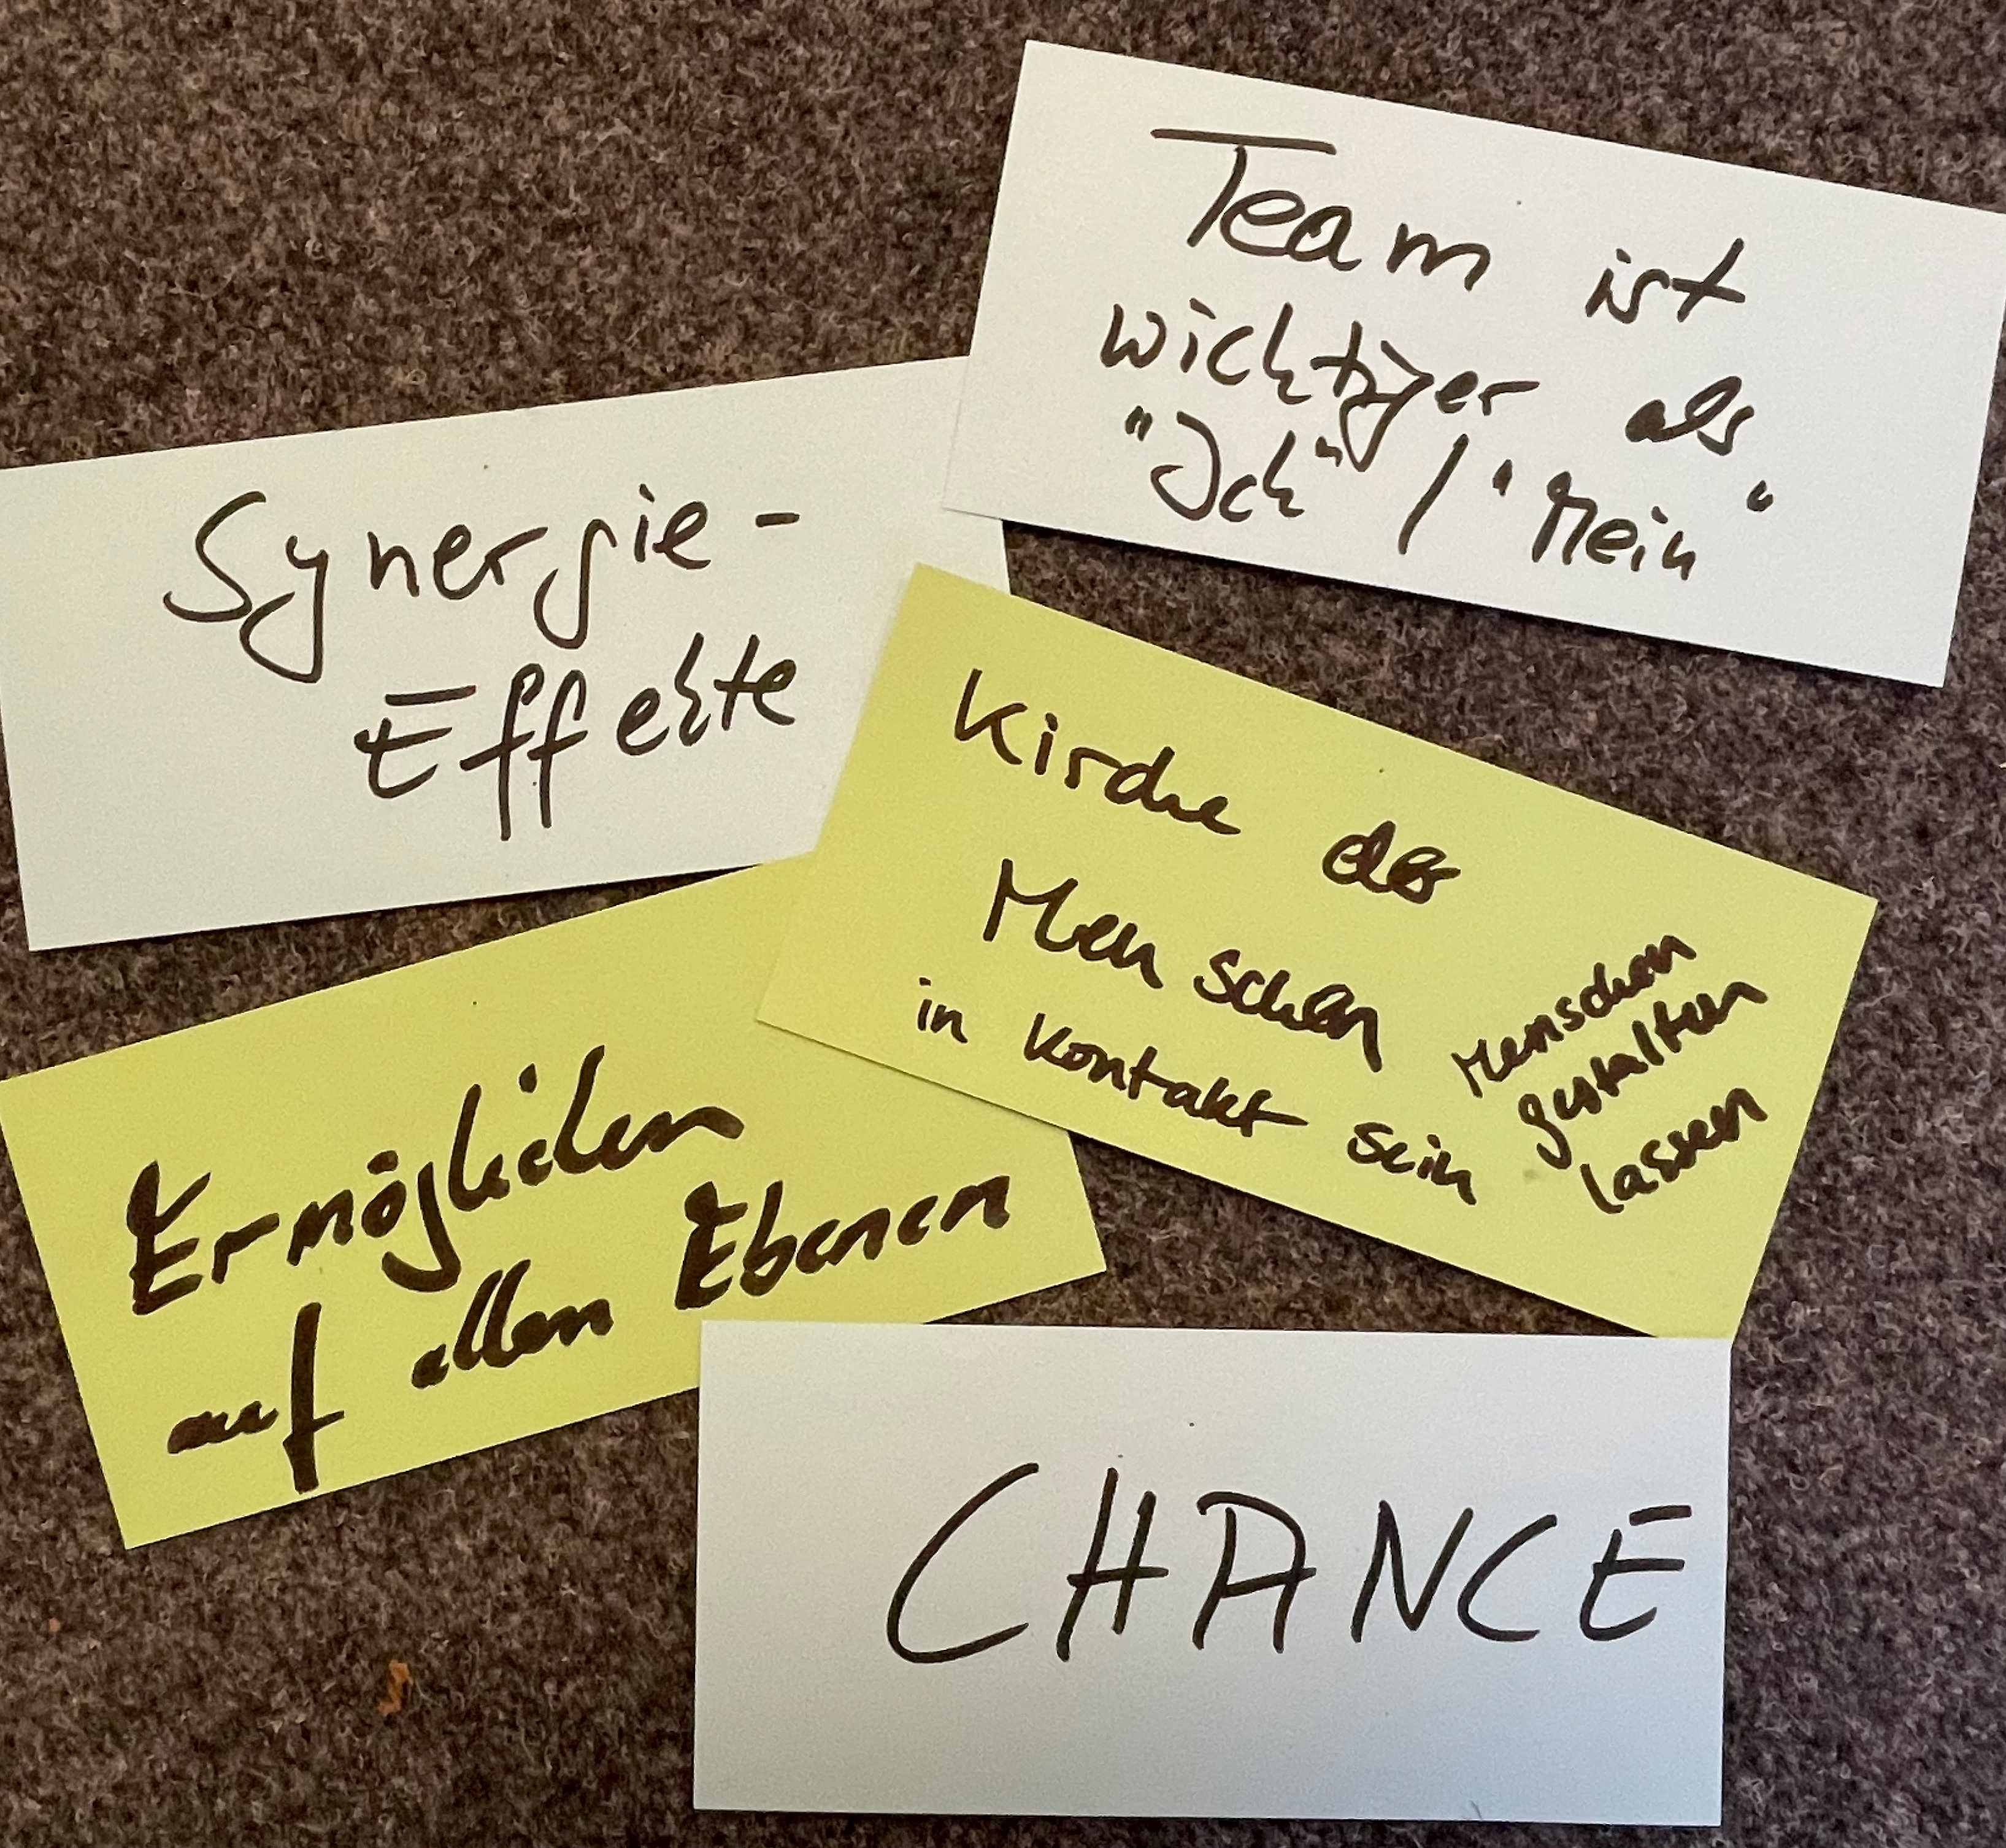 Team ist
wichtiger als
"Ich" / "Mein"
Synergie-
Effekte
Kirche der
Menschen
in Kontakt sein
Menschen
gestalten
lassen
Ermöglichen
auf allen Ebenen
CHANCE